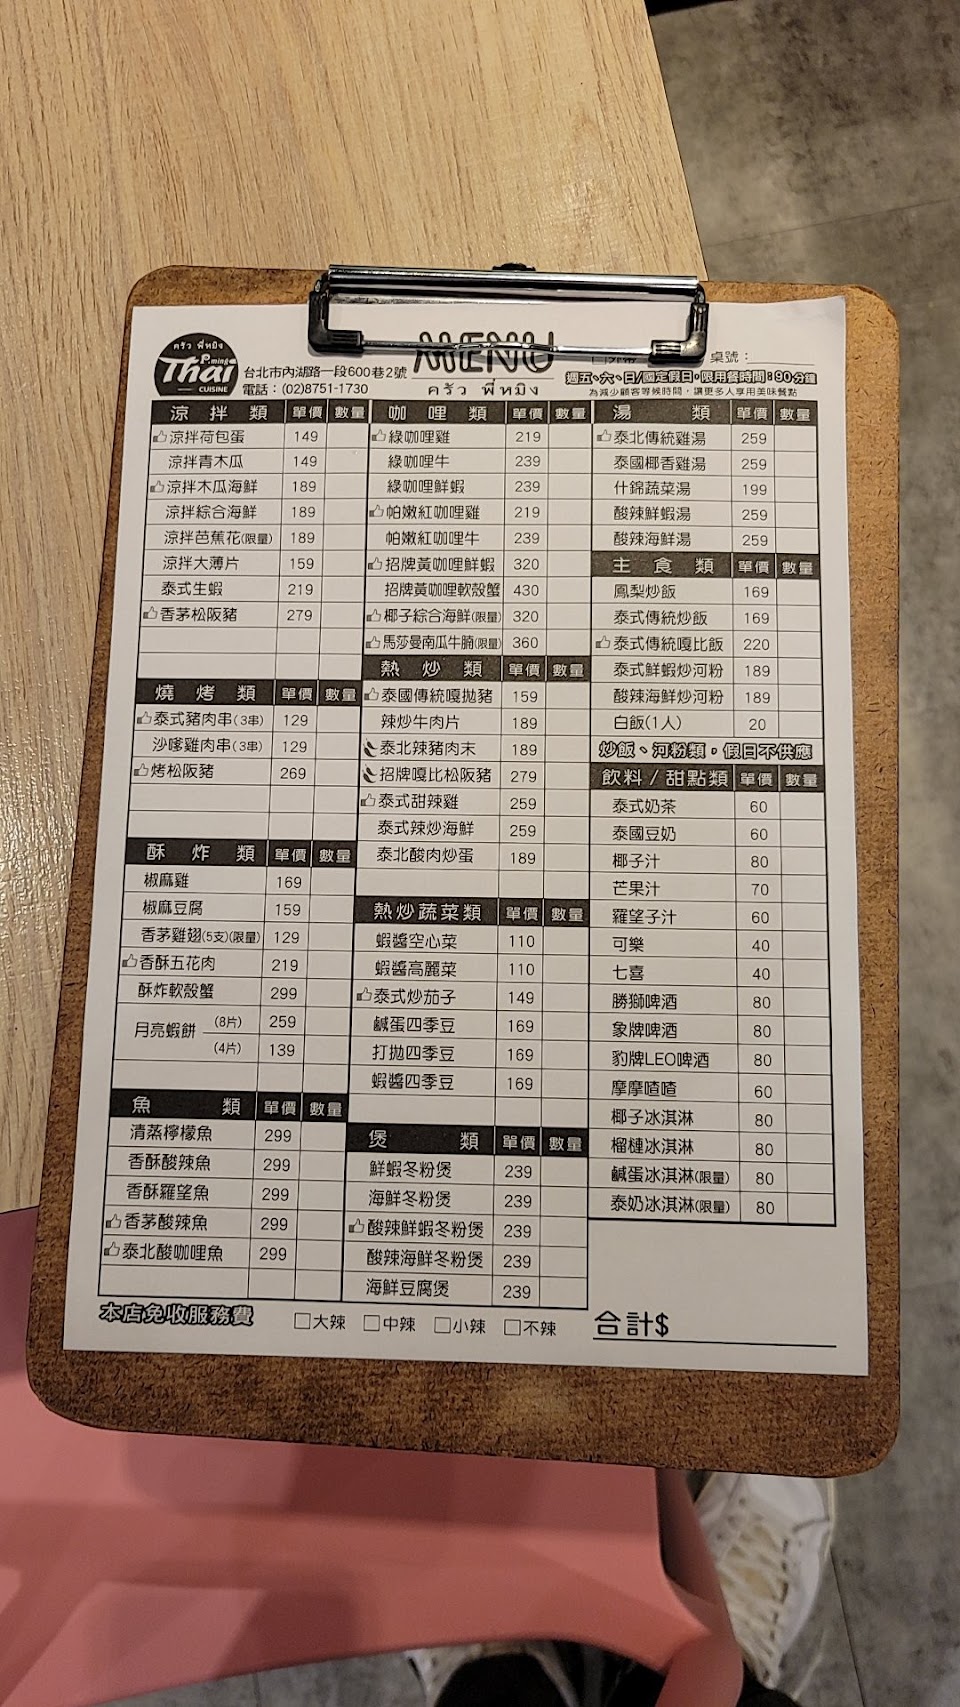 ครัว พี่หมิง
P.ming
Thai
CUISINE
台北市內湖路一段600巷2號
電話：(02)8751-1730
MENU
ครัว พี่หมิง
桌號：
週五、六、日/國定假日，限用餐時間：90分鐘
為減少顧客等候時間，讓更多人享用美味餐點
涼拌類 單價 數量
涼拌荷包蛋 149
涼拌青木瓜 149
涼拌木瓜海鮮 189
涼拌綜合海鮮 189
涼拌芭蕉花(限量) 189
涼拌大薄片 159
泰式生蝦 219
香茅松阪豬 279
燒烤類 單價 數量
泰式豬肉串(3串) 129
沙嗲雞肉串(3串) 129
烤松阪豬 269
酥炸類 單價 數量
椒麻雞 169
椒麻豆腐 159
香茅雞翅(5支)(限量) 129
香酥五花肉 219
酥炸軟殼蟹 299
月亮蝦餅 (8片) 259
(4片) 139
魚類 單價 數量
清蒸檸檬魚 299
香酥酸辣魚 299
香酥羅望魚 299
香茅酸辣魚 299
泰北酸咖哩魚 299
咖哩類 單價 數量
綠咖哩雞 219
綠咖哩牛 239
綠咖哩鮮蝦 239
帕嫩紅咖哩雞 219
帕嫩紅咖哩牛 239
招牌黃咖哩鮮蝦 320
招牌黃咖哩軟殼蟹 430
椰子綜合海鮮(限量) 320
馬莎曼南瓜牛腩(限量) 360
熱炒類 單價 數量
泰國傳統嘎拋豬 159
辣炒牛肉片 189
泰北辣豬肉末 189
招牌嘎比松阪豬 279
泰式甜辣雞 259
泰式辣炒海鮮 259
泰北酸肉炒蛋 189
熱炒蔬菜類 單價 數量
蝦醬空心菜 110
蝦醬高麗菜 110
泰式炒茄子 149
鹹蛋四季豆 169
打拋四季豆 169
蝦醬四季豆 169
煲類 單價 數量
鮮蝦冬粉煲 239
海鮮冬粉煲 239
酸辣鮮蝦冬粉煲 239
酸辣海鮮冬粉煲 239
海鮮豆腐煲 239
湯類 單價 數量
泰北傳統雞湯 259
泰國椰香雞湯 259
什錦蔬菜湯 199
酸辣鮮蝦湯 259
酸辣海鮮湯 259
主食類 單價 數量
鳳梨炒飯 169
泰式傳統炒飯 169
泰式傳統嘎比飯 220
泰式鮮蝦炒河粉 189
酸辣海鮮炒河粉 189
白飯(1人) 20
炒飯、河粉類，假日不供應
飲料/甜點類 單價 數量
泰式奶茶 60
泰國豆奶 60
椰子汁 80
芒果汁 70
羅望子汁 60
可樂 40
七喜 40
勝獅啤酒 80
象牌啤酒 80
豹牌LEO啤酒 80
摩摩喳喳 60
椰子冰淇淋 80
榴槤冰淇淋 80
鹹蛋冰淇淋(限量) 80
泰奶冰淇淋(限量) 80
本店免收服務費
大辣 中辣 小辣 不辣
合計$